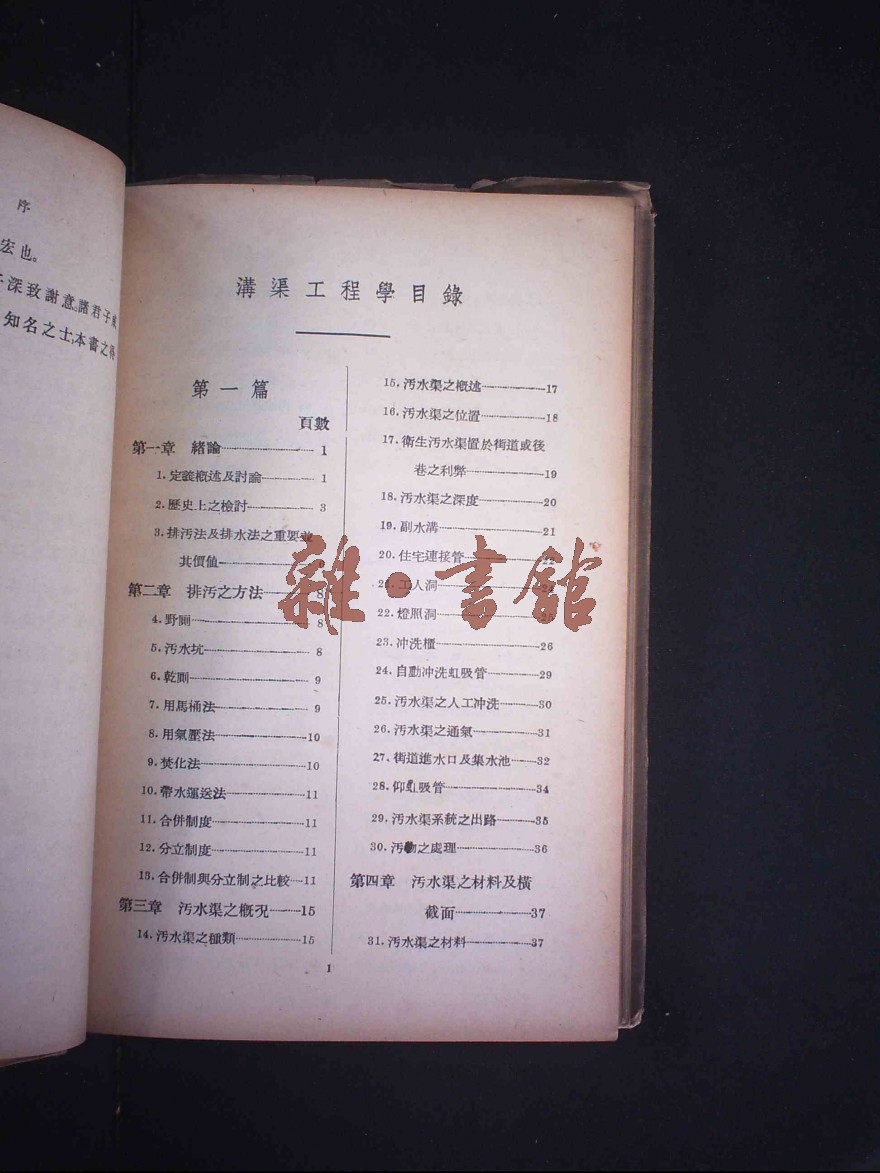 序
宏也。
深致謝意。諸君子
知名之士,本書之
溝渠工程學目錄
第一篇
頁數
第一章 緒論 1
1. 定義概述及討論 1
2. 歷史上之檢討 3
3. 排污法及排水法之重要並
其價值
第二章 排污之方法 8
4. 野厕 8
5. 污水坑 8
6. 乾厕 9
7. 用馬桶法 9
8. 用氣壓法 10
9. 焚化法 10
10. 帶水運送法 11
11. 合併制度 11
12. 分立制度 11
13. 合併制與分立制之比較 11
第三章 污水渠之概況 15
14. 污水渠之種類 15
15. 污水渠之概述 17
16. 污水渠之位置 18
17. 衛生污水渠置於街道或後
巷之利弊 19
18. 污水渠之深度 20
19. 副水溝 21
20. 住宅連接管 22
工人洞
22. 燈照洞
23. 冲洗櫃 26
24. 自動冲洗虹吸管 29
25. 污水渠之人工冲洗 30
26. 污水渠之通氣 31
27. 街道進水口及集水池 32
28. 仰虹吸管 34
29. 污水渠系統之出路 35
30. 污物之處理 36
第四章 污水渠之材料及橫
截面 37
31. 污水渠之材料 37
1
雜·書館